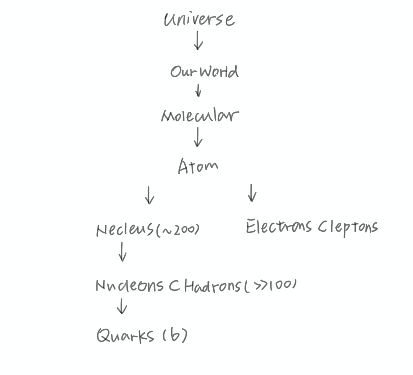 Universe
Our World
Molecular
Atom
Necleus (~200) Electrons Cleptons
Nucleons C Hadrons ( >>100)
Quarks (6)